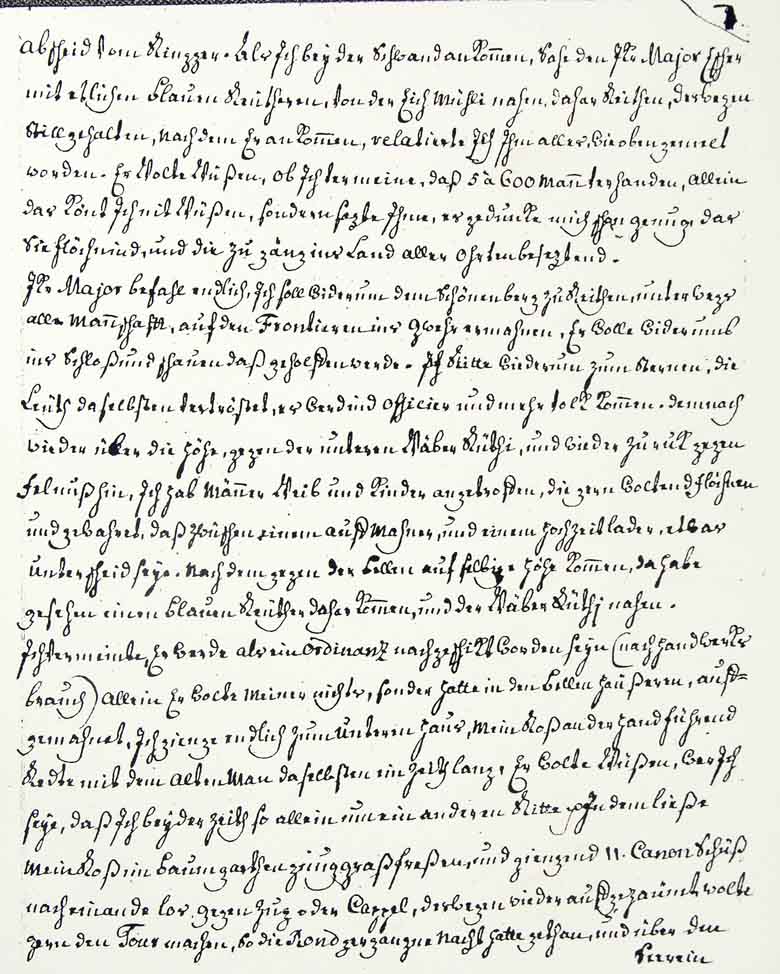 7
abscheid vom Ringger. Als Ich bey der Schwand ankommen, Sahe den Jkr Major Escher
mit etlichen blauen Reütheren, von der Eich Mühli nahen, dahar Reithen, deswegen
still gehalten, nach dem Er ankommen, relatierte Ich Ihm alles wie oben gemelt
worden. Er Wolte Wüßen, ob Ich vermeine, daß 5 à 600 Mann verhanden, allein
das Könt Ich nit Wüßen, sondern sagte Ihme, es gedunke mich schon genug, das
Sie flöchnind, und die zu gänz ins Land aller Ohrten beseztend.
Jkr Major befahl endlich, Ich soll widerum dem Schönenberg zu Reithen, unter wegs
alle Mannschafft, auf den Frontieren ins gwehr ermahnen, Er wolle widerumb
ins Schloß und schauen daß geholffen werde. Ich Ritte wiederum zum Sternen, die
Leüth daselbsten vertröstet, es werdind Officier und mehr volk kommen. demnach
wieder über die höhe, gegen der unteren Wäber Rüthi, und wieder zuruk gegen
Felmuß hin, Ich hab Männer Weib und Kinder angetroffen, die gern woltend flöchnen
und gewahret, daß zwüschen einem auff Mahner, und einem hochzeitlader, etwas
unterscheid seye. Nach dem gegen der bellen auf selbige höhe kommen, da habe
gesehen einen blauen Reüther dahar kommen, und der Wäber Rüthj nahen.
Ich vermeinte, Er werde als ein Ordinanz nachgeschikt worden seyn (nach handwerks
brauch) allein Er wolte meiner nichts, sonder hatte in den bellen häüßeren, auff=
gemahnet, Ich gienge endlich zum unteren haus, Mein Roß an der hand führend
Redte mit dem alten Man daselbsten ein Zeith lang, Er wolte Wüßen, wer Ich
seye, daß Ich bey der Zeith so allein um ein anderen Ritte, In dem ließe
mein Roß im baumgarthen gnug graß freßen, und giengend 11. Canon Schüß
nach einande los, gegen Zug oder Cappel, deswegen wieder auffgezäumt wolte
gern den Tour machen, so die Rond gergangne Nacht hatte gethan, und über den